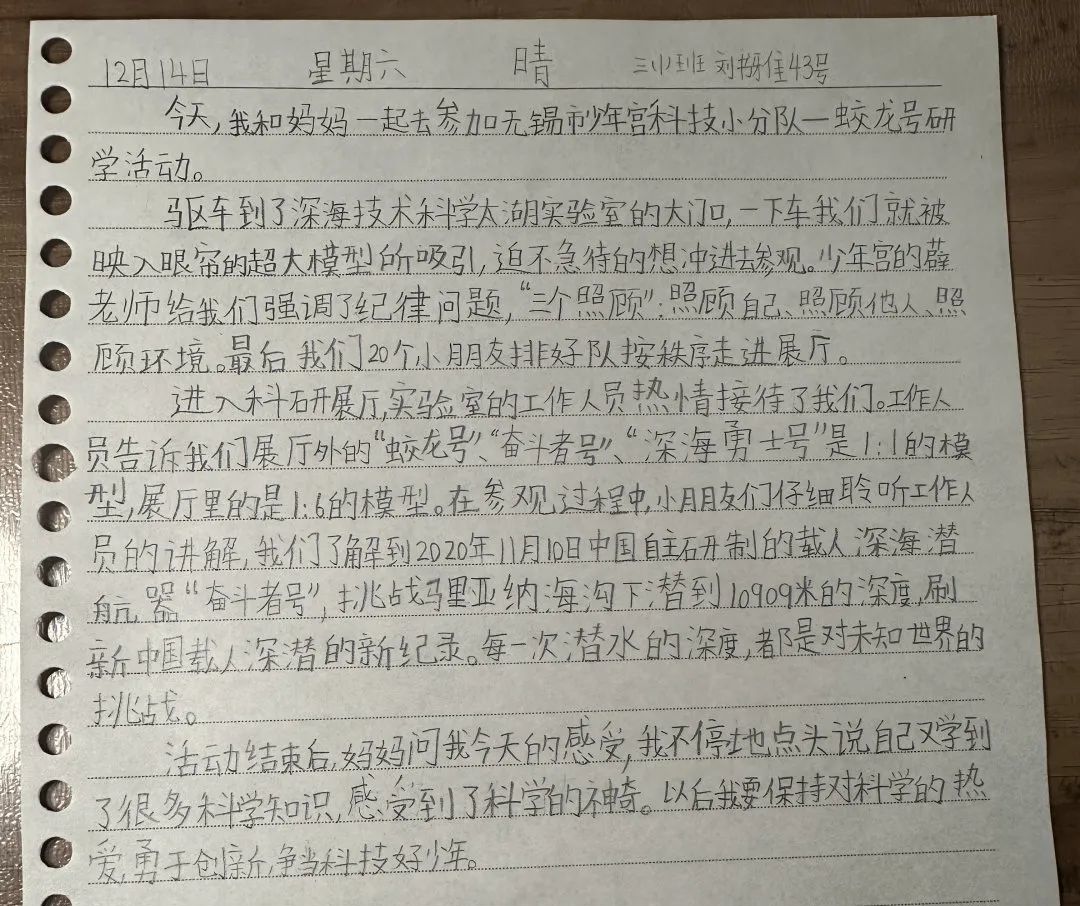 12月14日 星期六 晴 三(1)班 刘书佳43号
今天,我和妈妈一起去参加无锡市少年宫科技小分队—蛟龙号研
学活动。
驱车到了深海技术科学太湖实验室的大门口,一下车我们就被
映入眼帘的超大模型所吸引,迫不急待的想冲进去参观。少年宫的薜
老师给我们强调了纪律问题,“三个照顾”:照顾自己、照顾他人、照
顾环境。最后我们20个小朋友排好队按秩序走进展厅。
进入科研展厅,实验室的工作人员热情接待了我们。工作人
员告诉我们展厅外的“蛟龙号”、“奋斗者号”、“深海勇士号”是1:1的模
型,展厅里的是1:6的模型。在参观过程中,小朋友们仔细聆听工作人
员的讲解,我们了解到2020年11月10日中国自主研制的载人深海潜
航器“奋斗者号”,挑战马里亚纳海沟下潜到10909米的深度,刷
新中国载人深潜的新纪录。每一次潜水的深度,都是对未知世界的
挑战。
活动结束后,妈妈问我今天的感受,我不停地点头说自己又学到
了很多科学知识,感受到了科学的神奇。以后我要保持对科学的热
爱,勇于创新,争当科技好少年。